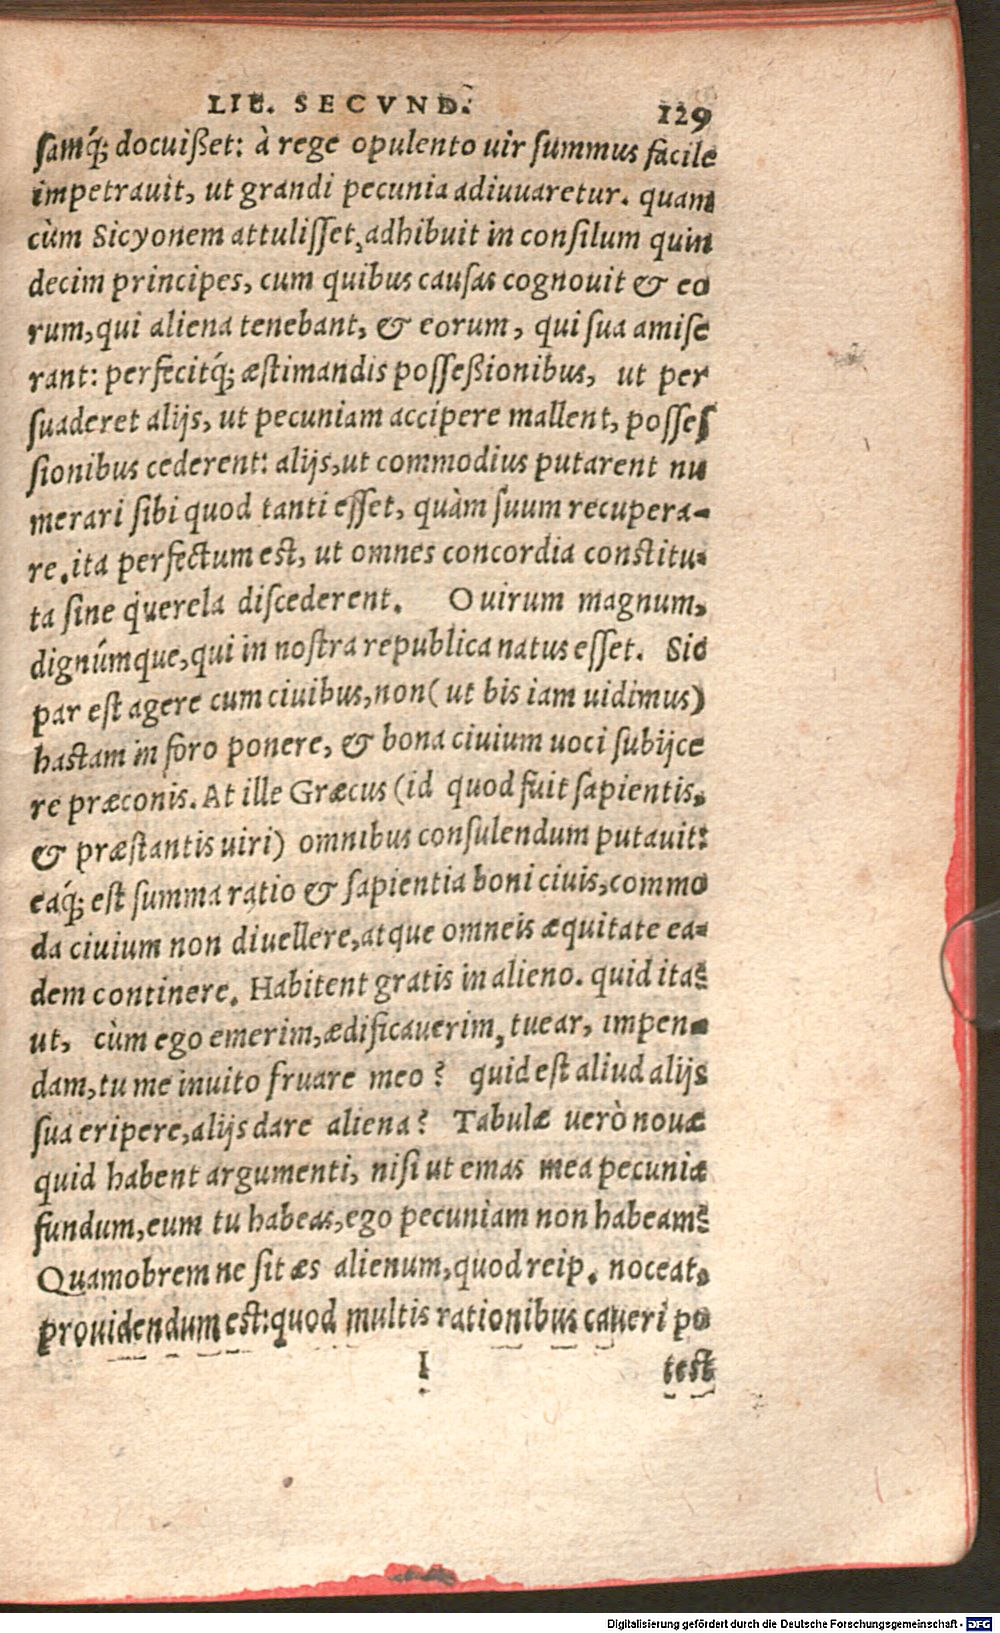 LIB. SECVND. 129
samq́; docuißet: à rege opulento uir summus facile
impetrauit, ut grandi pecunia adiuuaretur. quam
cùm Sicyonem attulisset, adhibuit in consilum quin
decim principes, cum quibus causas cognouit & eo
rum, qui aliena tenebant, & eorum, qui sua amise
rant: perfecitq́; æstimandis posseßionibus, ut per
suaderet alijs, ut pecuniam accipere mallent, posses
sionibus cederent: alijs, ut commodius putarent nu
merari sibi quod tanti esset, quàm suum recupera-
re. ita perfectum est, ut omnes concordia constitu-
ta sine querela discederent. O uirum magnum,
dignúmque, qui in nostra republica natus esset. Sic
par est agere cum ciuibus, non (ut bis iam uidimus)
hastam in foro ponere, & bona ciuium uoci subijce
re præconis. At ille Græcus (id quod fuit sapientis,
& præstantis uiri) omnibus consulendum putauit:
eaq́; est summa ratio & sapientia boni ciuis, commo
da ciuium non diuellere, atque omneis æquitate ea-
dem continere. Habitent gratis in alieno. quid ita?
ut, cùm ego emerim, ædificauerim, tuear, impen-
dam, tu me inuito fruare meo? quid est aliud alijs
sua eripere, alijs dare aliena? Tabulæ uerò nouæ
quid habent argumenti, nisi ut emas mea pecunia
fundum, eum tu habeas, ego pecuniam non habeam?
Quamobrem ne sit æs alienum, quod reip. noceat,
prouidendum est: quod multis rationibus caueri po
I test
Digitalisierung gefördert durch die Deutsche Forschungsgemeinschaft - DFG